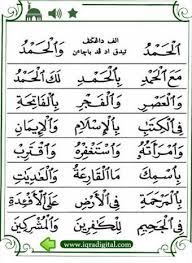 الف دالڠکف
تيدق اد قد باچاءن
اَلْحَمْدُ وَالْحَمْدُ
مَعَ الْحَمْدِ بِالْحَمْدِ لَكَ الْحَمْدُ
وَالْعَصْرِ وَالْفَجْرِ بِالْفَاتِحَةِ
فِي الْكِتٰبِ بِالْإِسْلَامِ وَالْإِيمَانِ
وَامْرَأَتُهُ وَاسْتَغْفِرْهُ وَاقْتَرِبْ
بِاسْمِكَ مَاالْقَارِعَةُ
بِالْمَرْحَمَةِ فِي الْأَرْضِ عَلَى الْأَفْئِدَةِ
فِي الْجَحِيمِ لِلْكٰفِرِينَ وَالْمُشْرِكِينَ
www.iqradigital.com